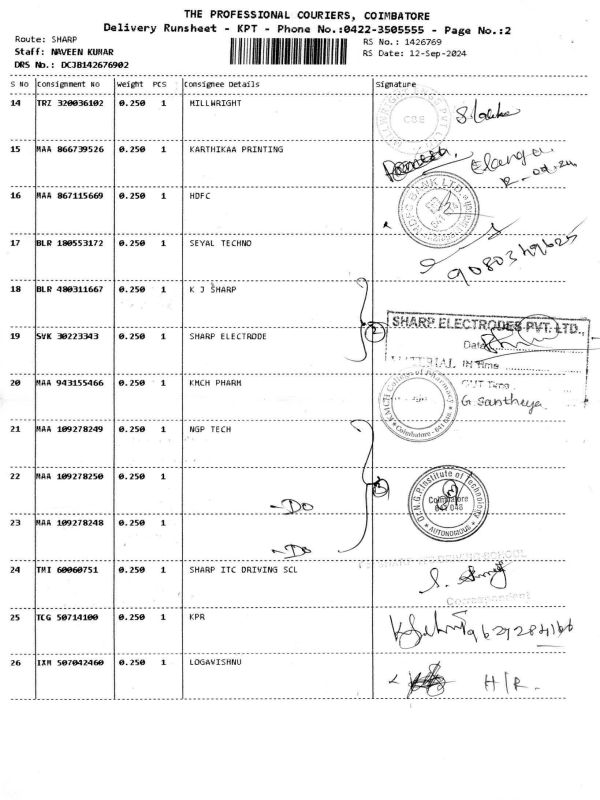 THE PROFESSIONAL COURIERS, COIMBATORE
Delivery Runsheet - KPT - Phone No.:0422-3505555 - Page No.:2
Route: SHARP
RS No.: 1426769
Staff: NAVEEN KUMAR
RS Date: 12-Sep-2024
DRS No.: DCJB142676902
S No Consignment No Weight PCS Consignee Details Signature
14 TRZ 320036102 0.250 1 MILLWRIGHT
CBE
15 MAA 866739526 0.250 1 KARTHIKAA PRINTING
16 MAA 867115669 0.250 1 HDFC
HDFC BANK LTD.
17 BLR 180553172 0.250 1 SEYAL TECHNO
18 BLR 480311667 0.250 1 K J SHARP
19 SVK 30223343 0.250 1 SHARP ELECTRODE 2
SHARP ELECTRODES PVT. LTD.,
Date
MATERIAL IN Time
OUT Time
20 MAA 943155466 0.250 1 KMCH PHARM
KMCH College of Pharmacy
Coimbatore
G Santheya
21 MAA 109278249 0.250 1 NGP TECH
22 MAA 109278250 0.250 1 -Do 3
Dr. N.G.P. Institute of Technology
Coimbatore
641 048
AUTONOMOUS
23 MAA 109278248 0.250 1 -Do
24 TMI 60060751 0.250 1 SHARP ITC DRIVING SCL
Correspondent
25 TCG 50714100 0.250 1 KPR
26 IXM 507042460 0.250 1 LOGAVISHNU
H/R.